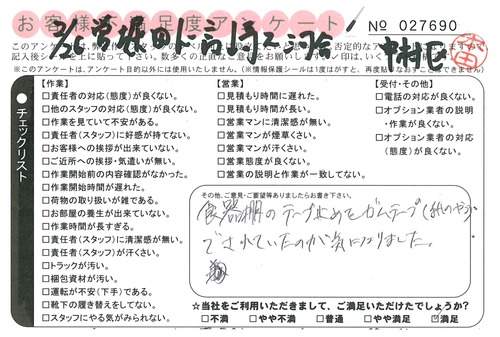 お客様不満足度アンケート
No 027690
このアンケートは、
※このアンケートは、アンケート目的以外には使用いたしません。(※情報保護シールは1度はがすと、再度貼りなおすことはできません)
チェックリスト
【作業】
□責任者の対応(態度)が良くない。
□他のスタッフの対応(態度)が良くない。
□作業を見ていて不安がある。
□責任者(スタッフ)に好感が持てない。
□お客様への挨拶が出来ていない。
□ご近所への挨拶・気遣いが無い。
□作業開始前の内容確認がなかった。
□作業開始時間が遅れた。
□荷物の取り扱いが雑である。
□お部屋の養生が出来ていない。
□作業時間が長すぎる。
□責任者(スタッフ)に清潔感が無い。
□責任者(スタッフ)が汗くさい。
□トラックが汚い。
□梱包資材が汚い。
□運転が不安(下手)である。
□靴下の履き替えをしてない。
□スタッフにやる気がみられない。
【営業】
□見積もり時間に遅れた。
□見積もり時間が長い。
□営業マンに清潔感が無い。
□営業マンが煙草くさい。
□営業マンが汗くさい。
□営業態度が良くない。
□営業の説明と作業が一致してない。
【受付・その他】
□電話の対応が良くない。
□オプション業者の説明
・作業が良くない。
□オプション業者の対応
(態度)が良くない。
その他、ご意見・ご要望等ありましたらお書き下さい。
食器棚のテープ止めをガムテープ
でされていたのが気になりました。
☆当社をご利用いただきまして、ご満足いただけたでしょうか？
□不満 □やや不満 □普通 □やや満足 ☑満足